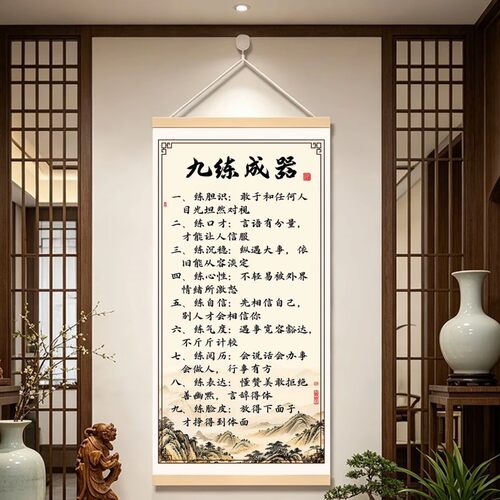 九练成器
一、练胆识：敢于和任何人
目光坦然对视
二、练口才：言语有分量，
才能让人信服
三、练沉稳：纵遇大事，依
旧能从容淡定
四、练心性：不轻易被外界
情绪所激怒
五、练自信：先相信自己，
别人才会相信你
六、练气度：遇事宽容豁达，
不斤斤计较
七、练阅历：会说话会办事
会做人，行事有方
八、练表达：懂赞美敢拒绝
善幽默，言辞得体
九、练脸皮：放得下面子
才挣得到体面